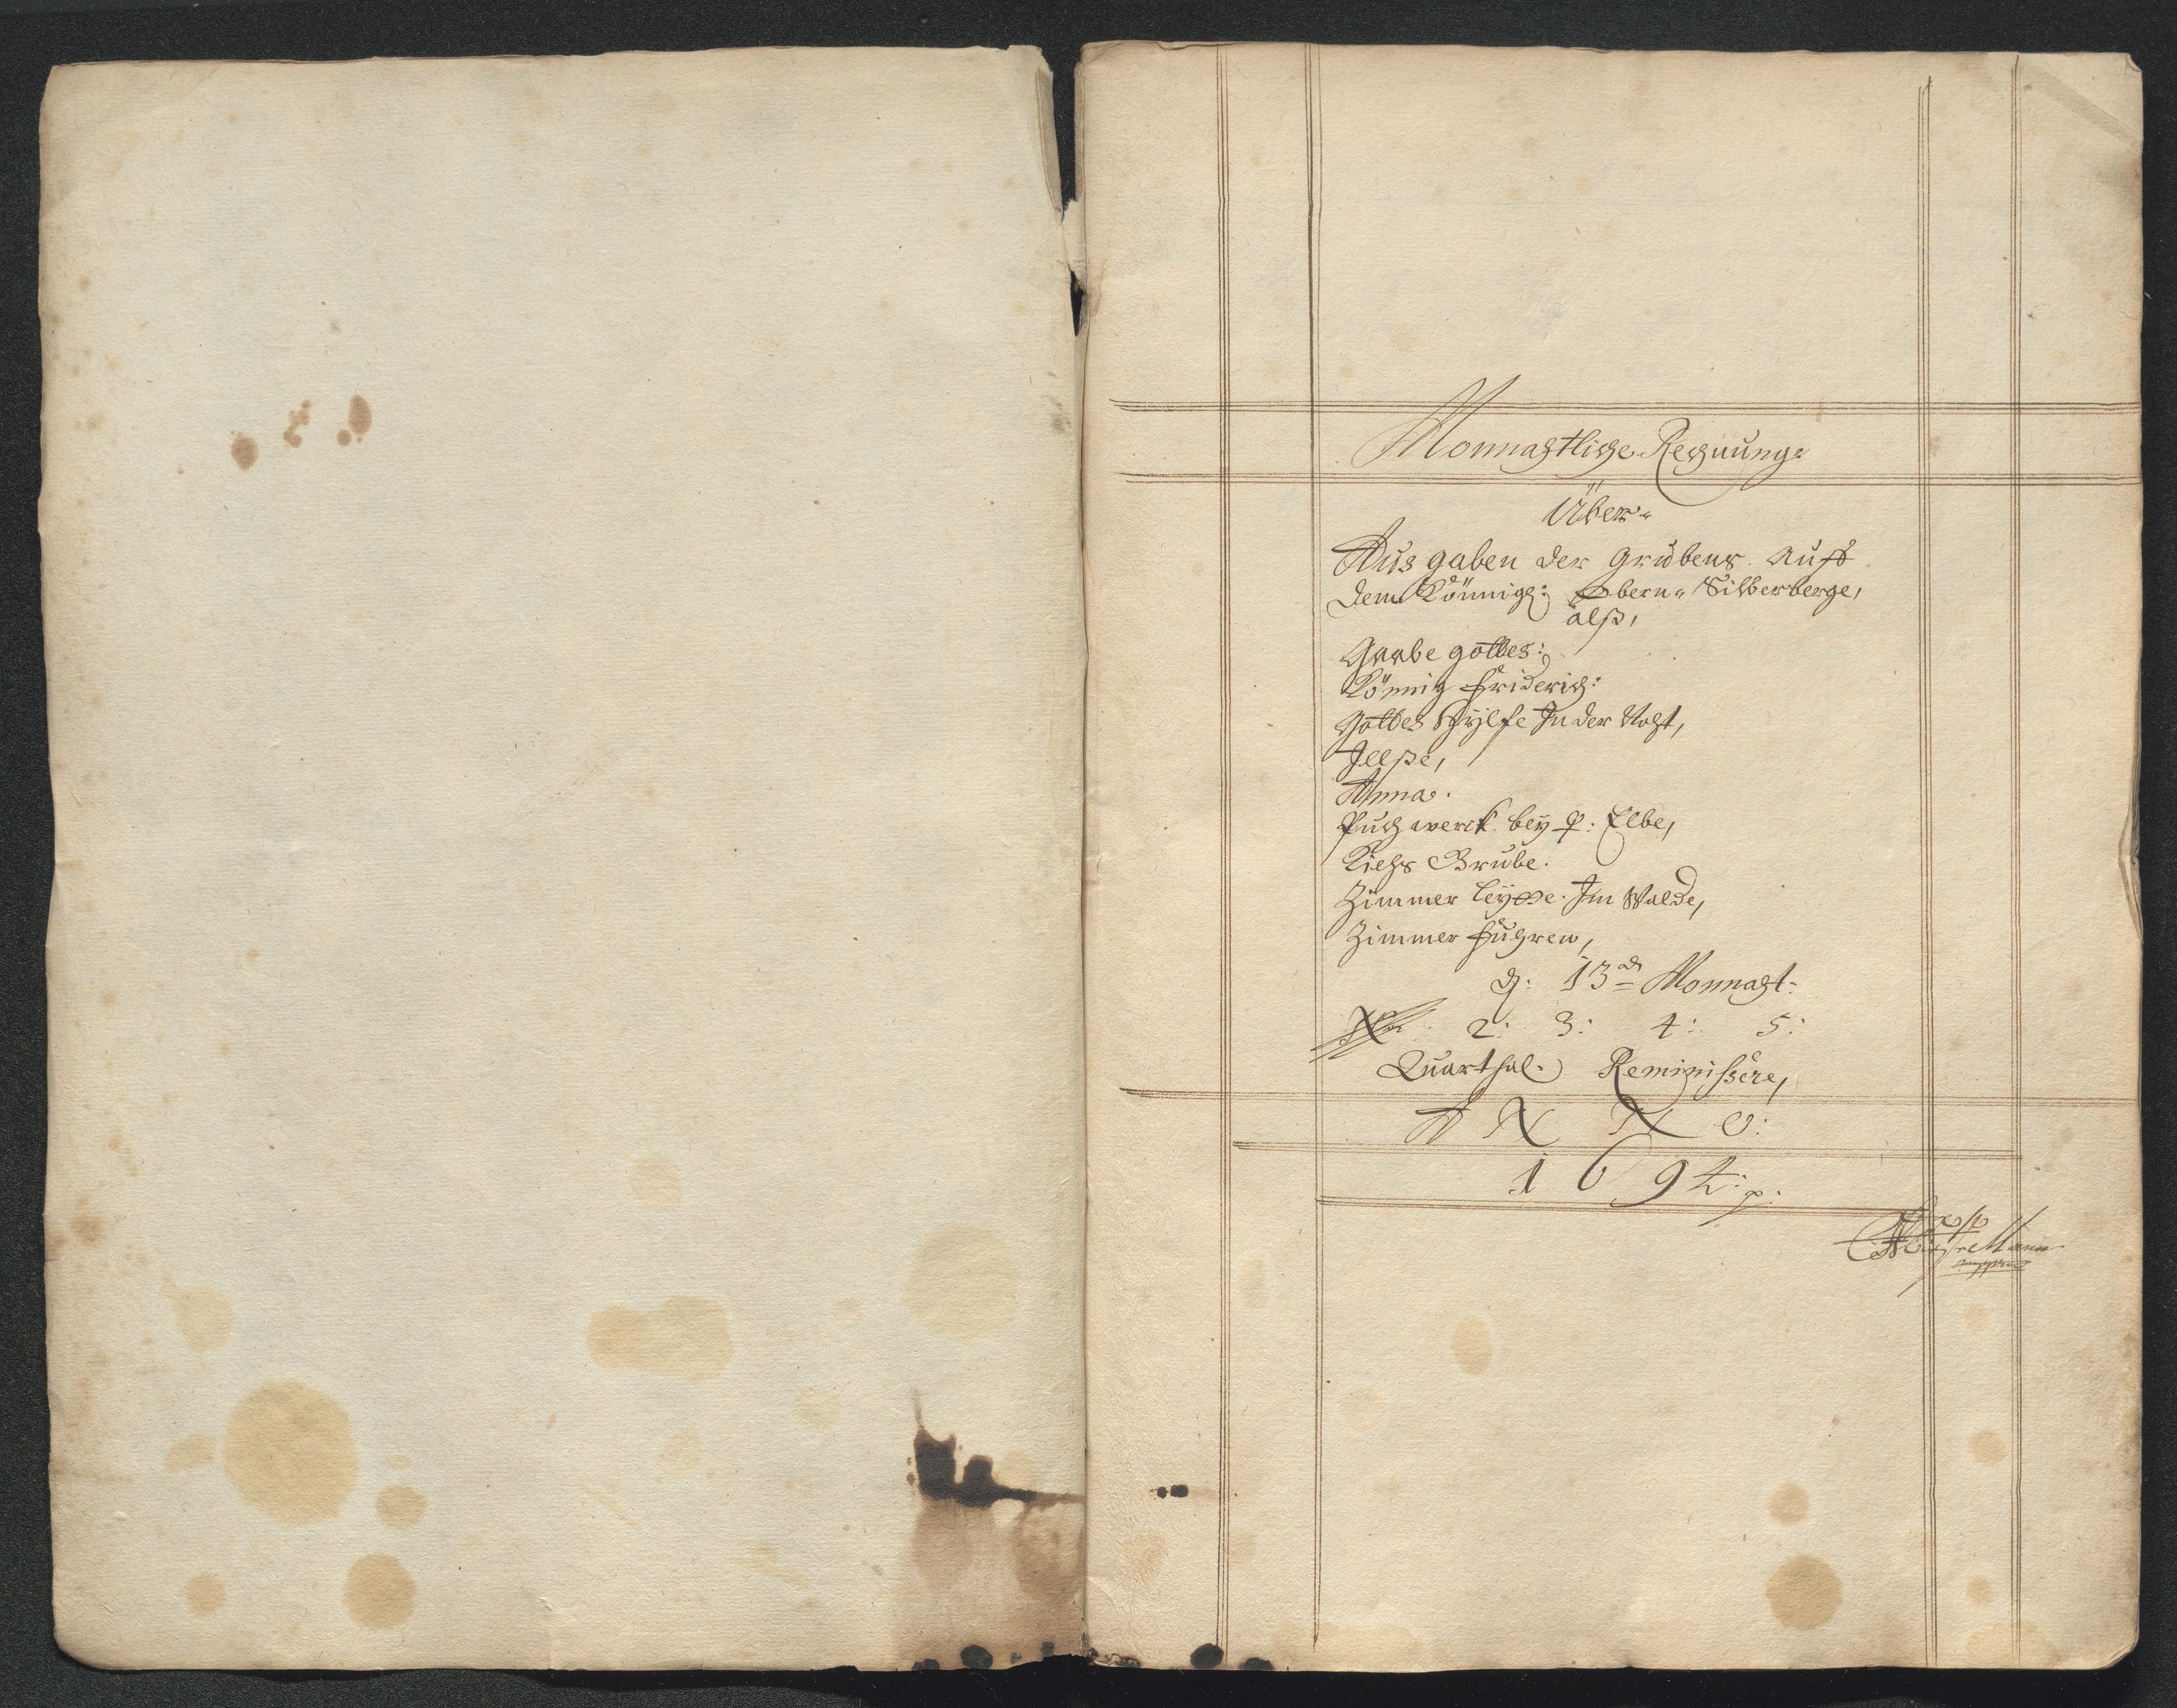 Monnahtliche Rechnung:
Über
Ausgaben der Grubens auff
dem Könnigl: Obern Silberberge,
alß,
Gaabe gottes:
Könnig Friderich:
Gottes Hylfe In der Noht,
Anna.
Puchwerck bey Elbe,
Kiehs Grube.
Zimmer leyte. Im Walde,
Zimmer Fuhren,
d: 13 Monnaht:
2: 3: 4: 5:
Quarthal. Reminissere,
A N N O:
1694: p: